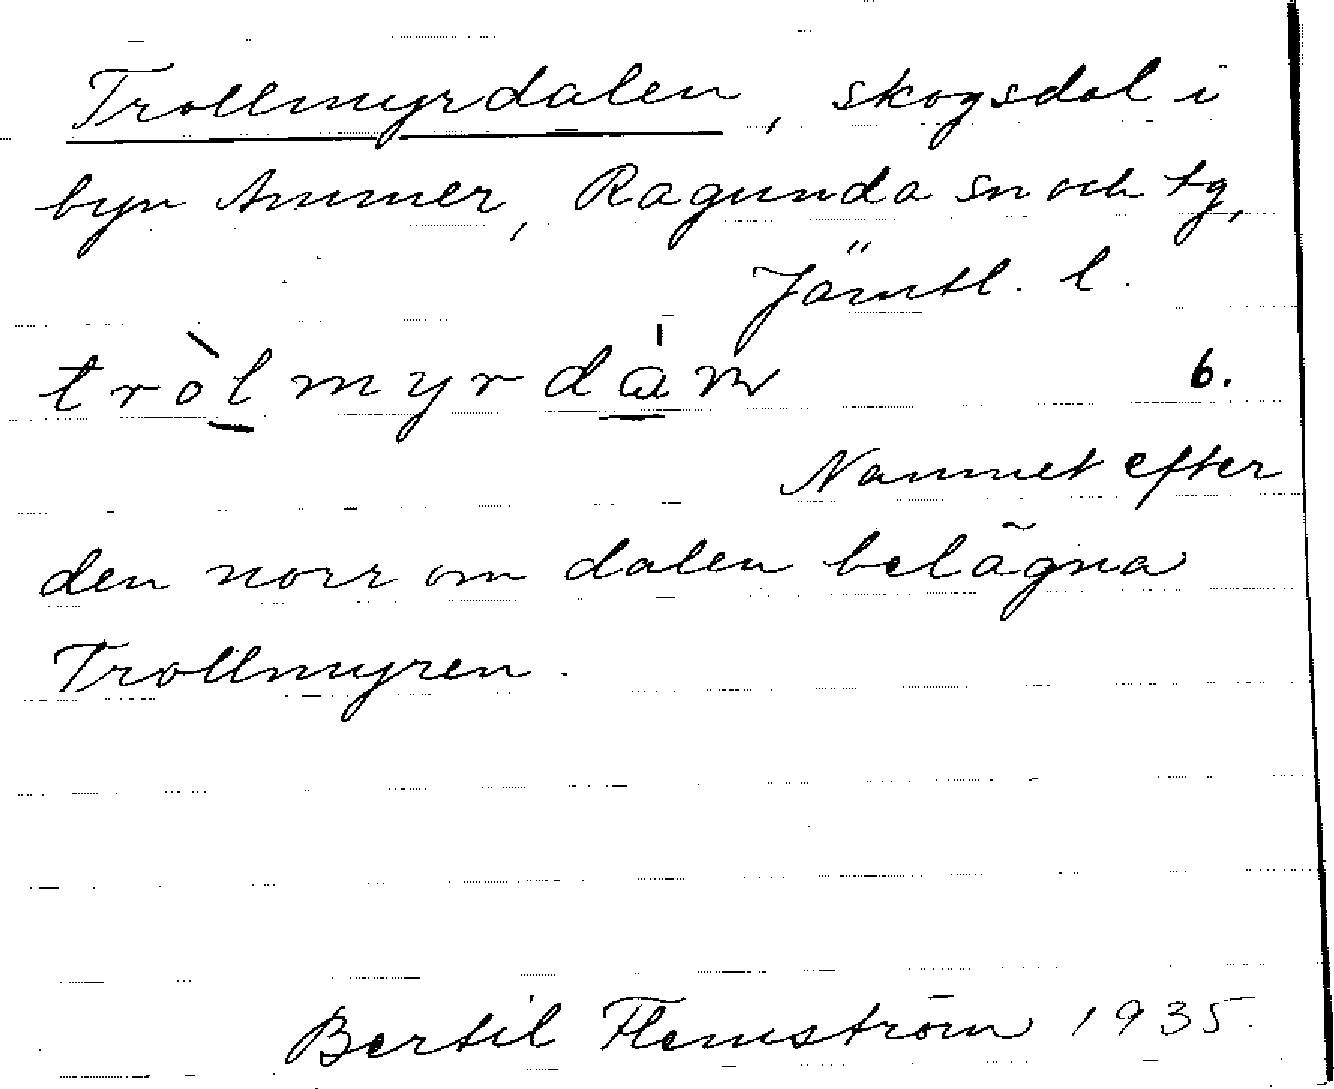 Trollmyrdalen, skogsdal i
byn Ammer, Ragunda sn och tg,
Jämtl. l.
tròlmyrdàm 6.
Namnet efter
den norr om dalen belägna
Trollmyren.
Bertil Flemström 1935.